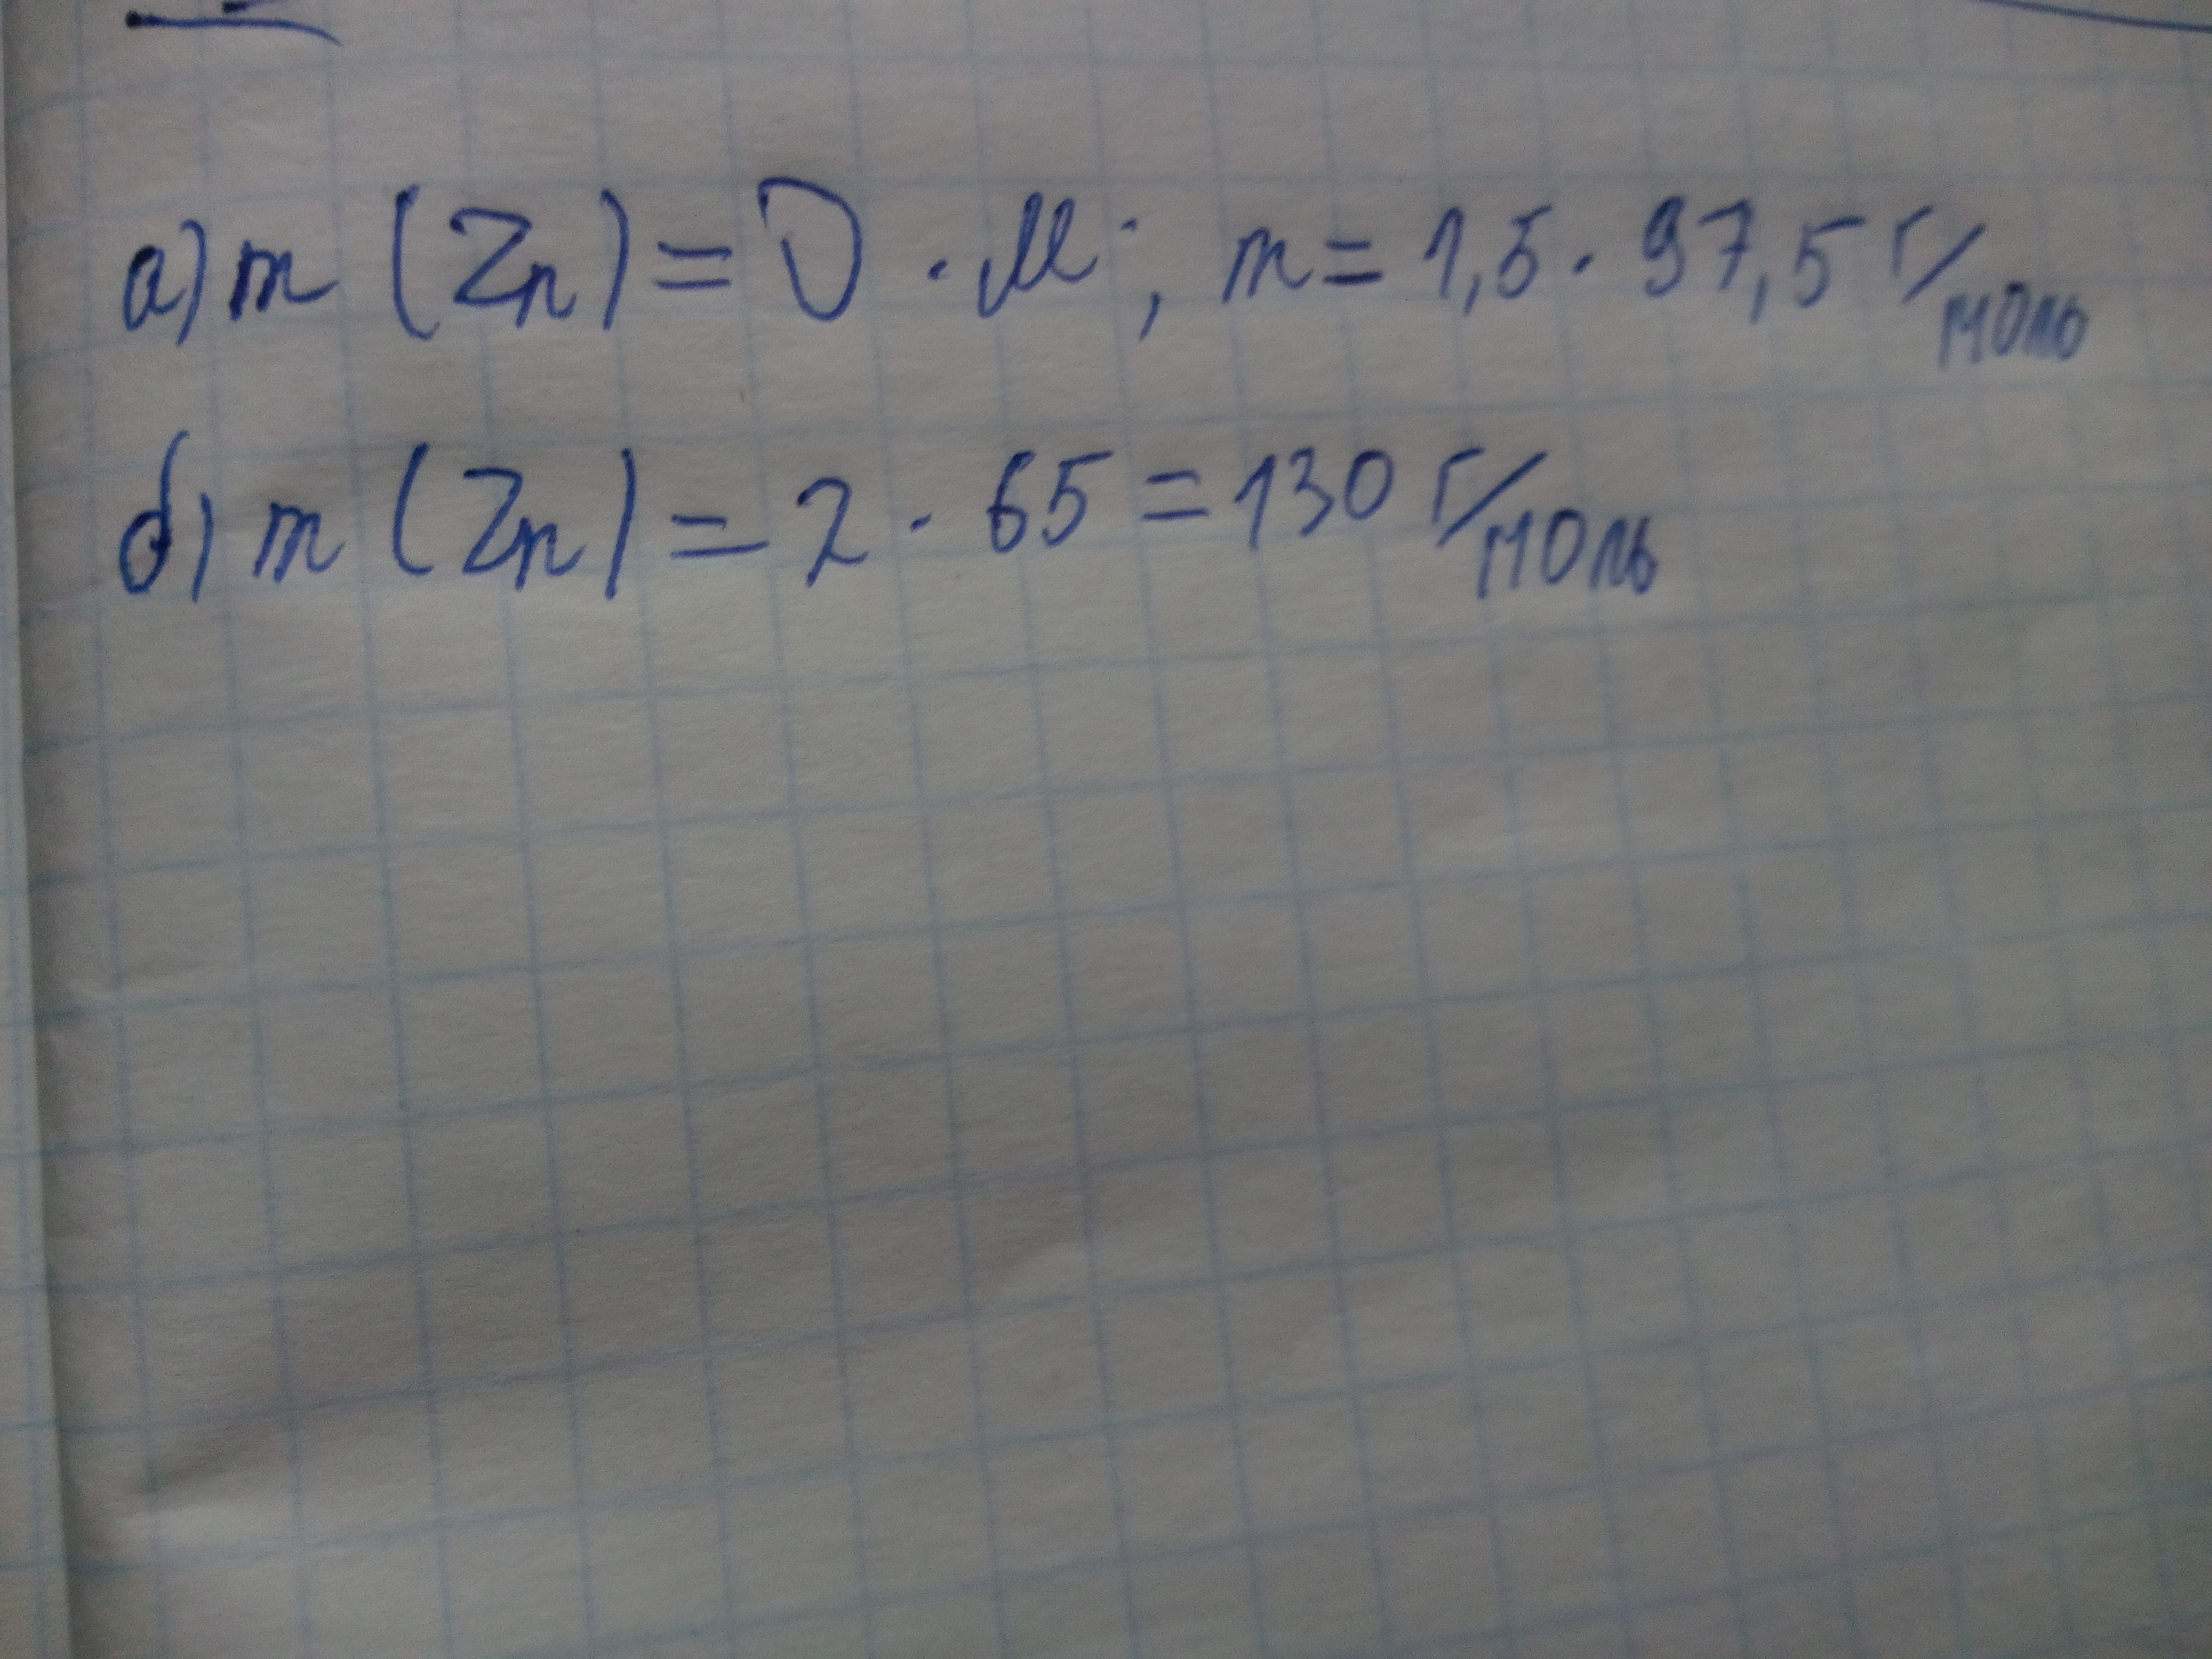 а) m (Zn) = ν · M; m = 1,5 · 97,5 г/моль
б) m (Zn) = 2 · 65 = 130 г/моль